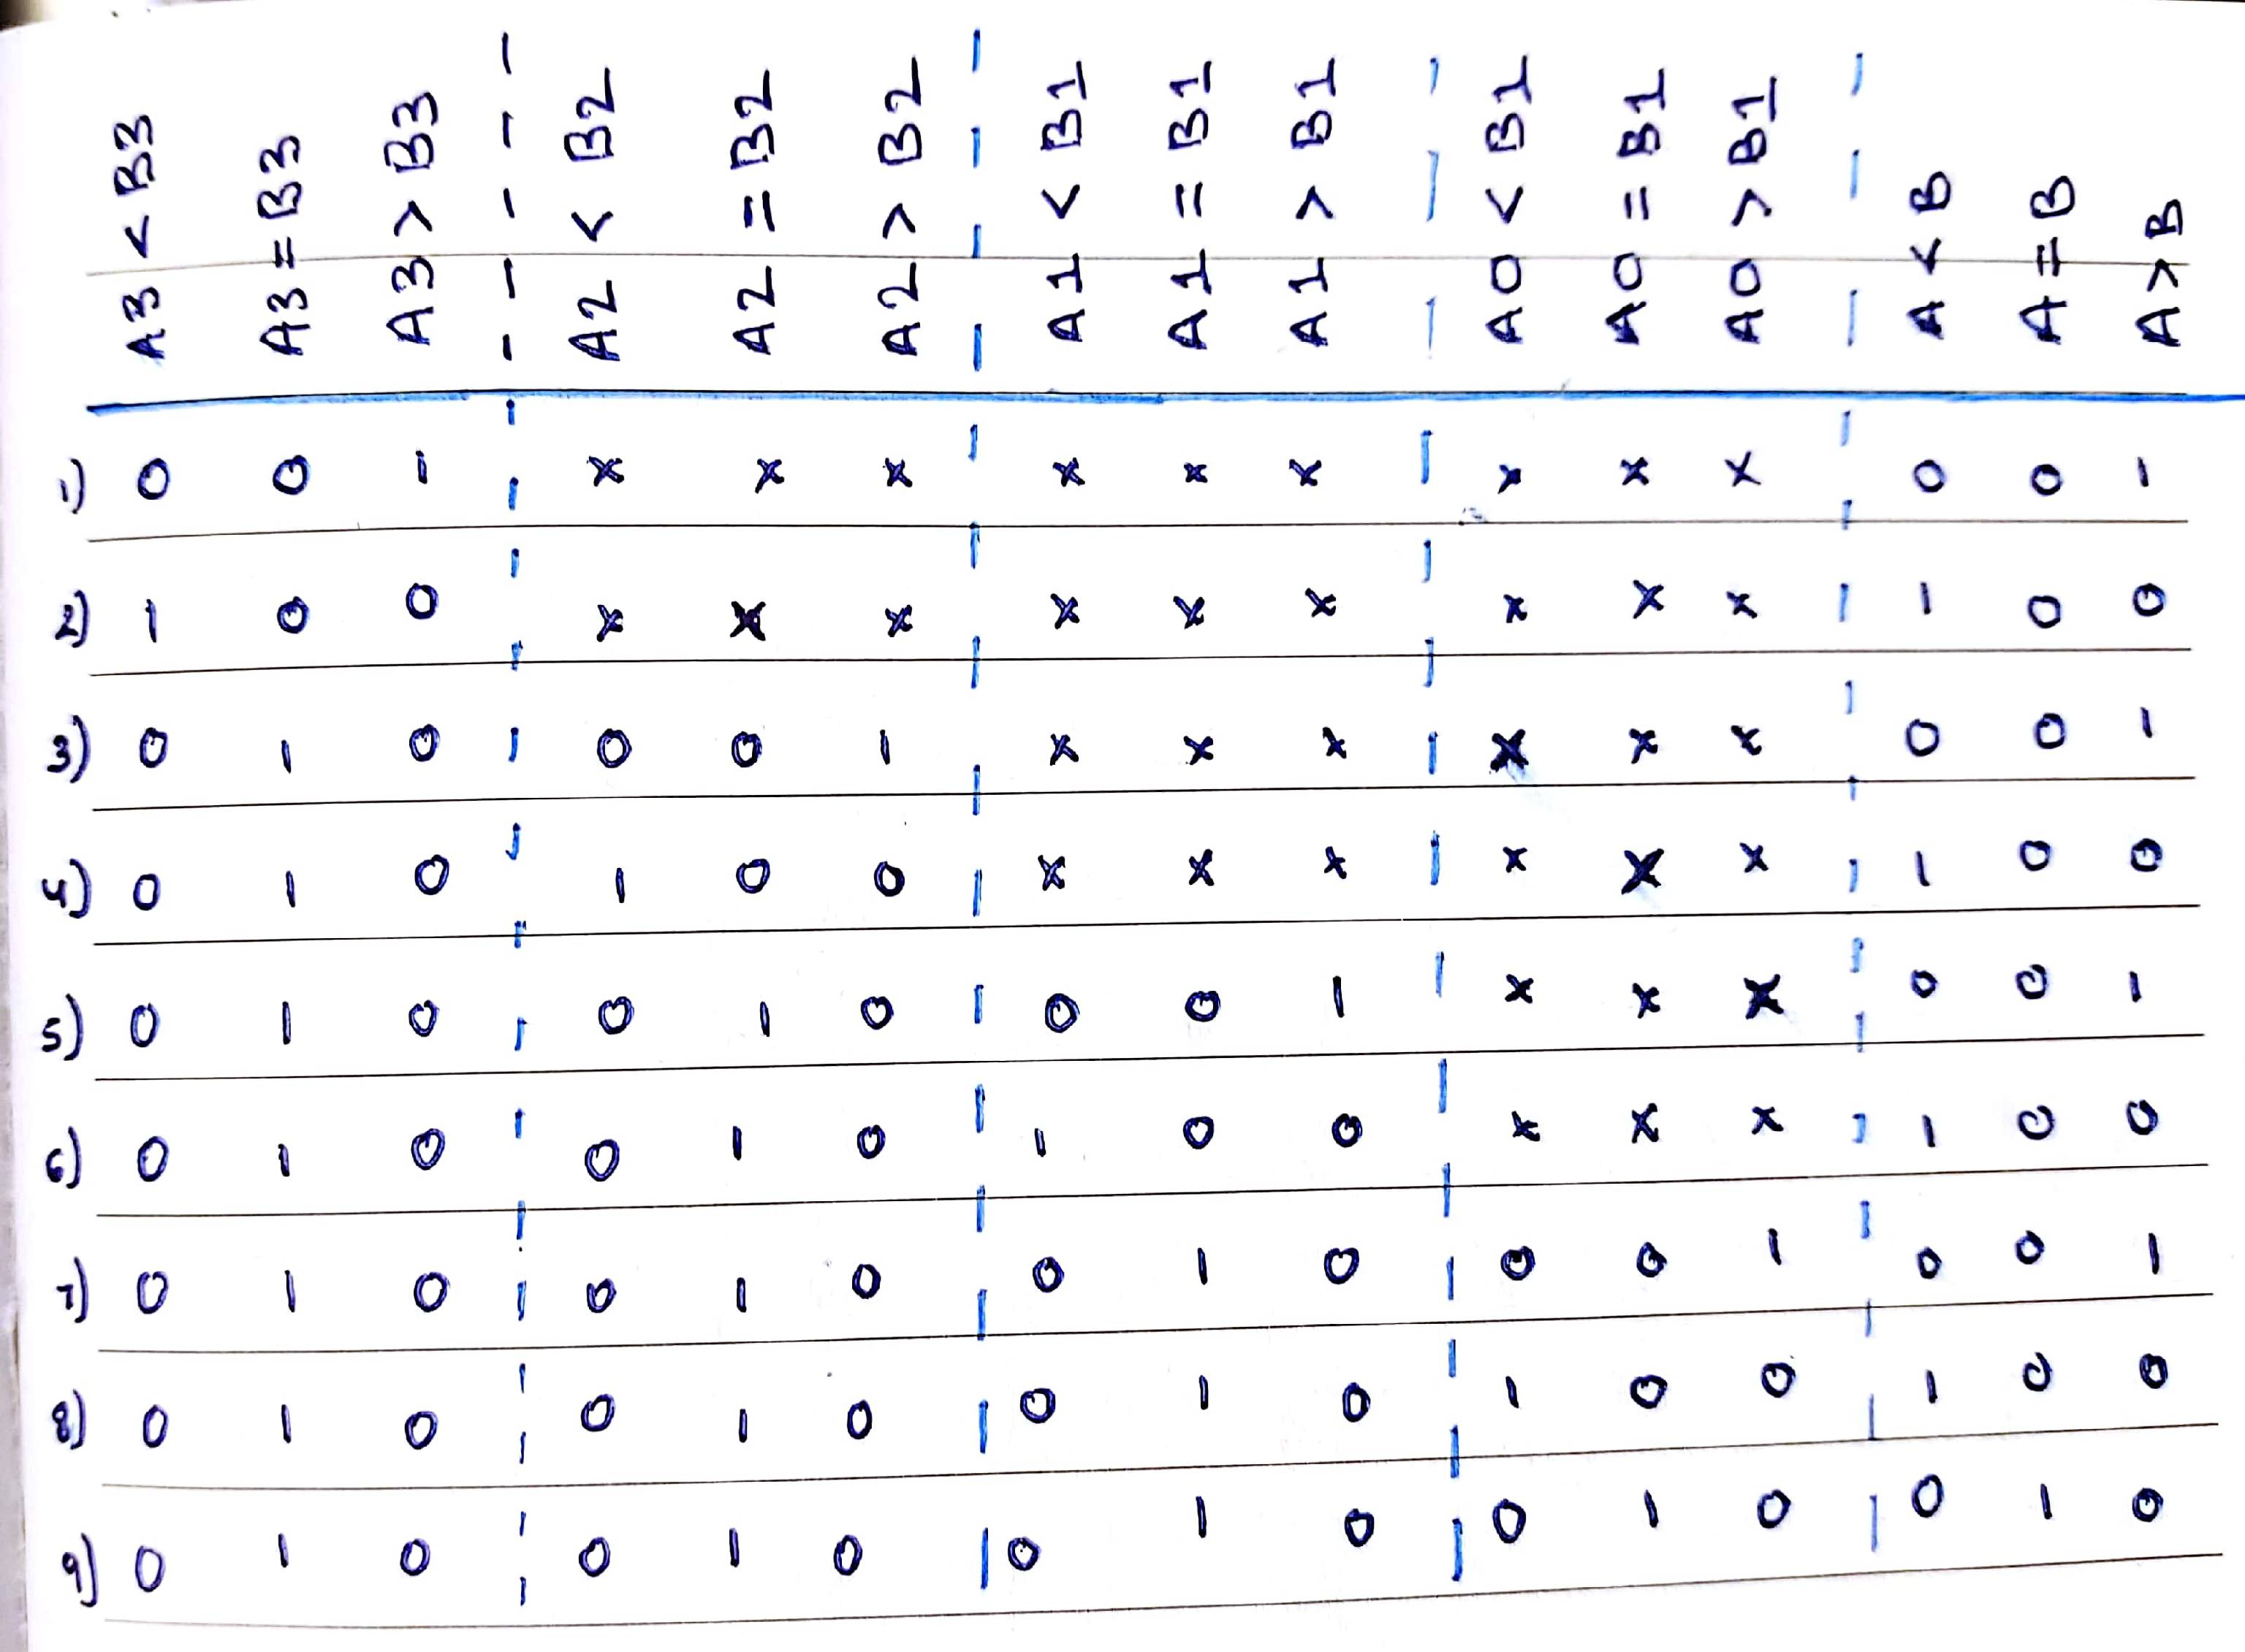 A3 < B3 A3 = B3 A3 > B3 A2 < B2 A2 = B2 A2 > B2 A1 < B1 A1 = B1 A1 > B1 A0 < B1 A0 = B1 A0 > B1 A < B A = B A > B
1) 0 0 1 x x x x x x x x x 0 0 1
2) 1 0 0 x x x x x x x x x 1 0 0
3) 0 1 0 0 0 1 x x x x x x 0 0 1
4) 0 1 0 1 0 0 x x x x x x 1 0 0
5) 0 1 0 0 1 0 0 0 1 x x x 0 0 1
6) 0 1 0 0 1 0 1 0 0 x x x 1 0 0
7) 0 1 0 0 1 0 0 1 0 0 0 1 0 0 1
8) 0 1 0 0 1 0 0 1 0 1 0 0 1 0 0
9) 0 1 0 0 1 0 0 1 0 0 1 0 0 1 0